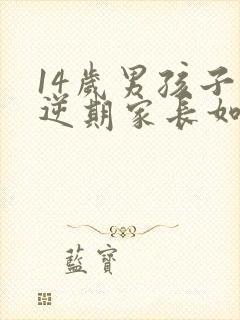 14歲男孩子
逆期家長如
藍寶